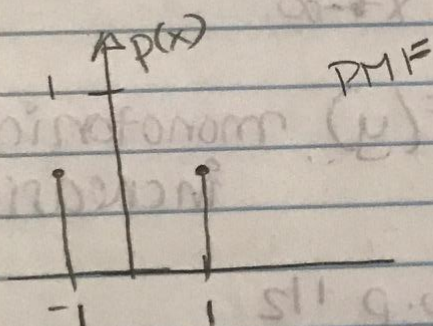 p(x)
PMF
1
-1 1